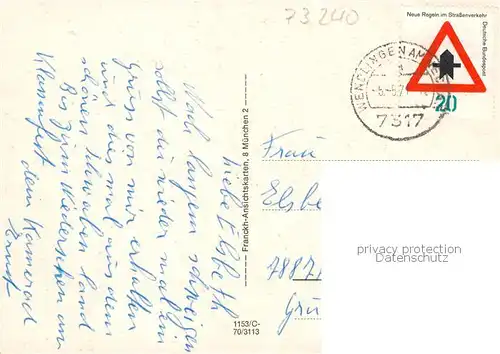 73240
Neue Regeln im Straßenverkehr
Deutsche Bundespost
20
WENDLINGEN AM
7317
liebe Elsbeth
Nach langem schweigen
sollst du wieder mal ein
Gruss von mir erhalten
und dies mal aus dem
schönen Schwaben land
Bis zum Wiedersehen am
Klassenfest dein Kamerad
Ernst
Franckh-Ansichtskarten, 8 München 2
1153/C-
70/3113
Frau
Elsbe
7887
Gru
privacy protection
Datenschutz